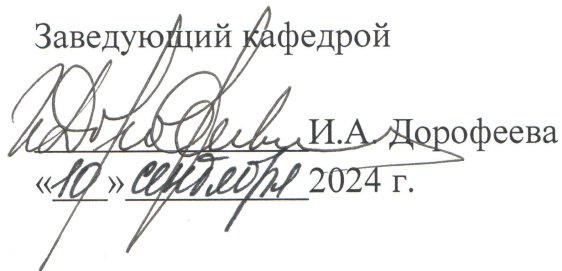 Заведующий кафедрой
И.А. Дорофеева
«10» сентября 2024 г.